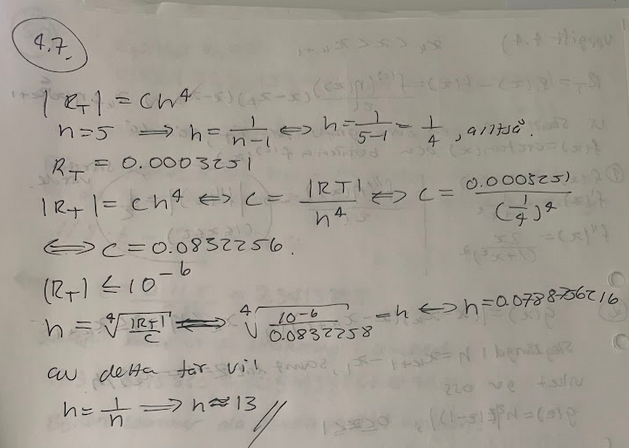 4.7.
|R_T| = Ch^4
n=5 ⟹ h = 1/(n-1) ⟺ h = 1/(5-1) = 1/4 , alltså.
R_T = 0.0003251
|R_T| = Ch^4 ⟺ C = |R_T|/h^4 ⟺ C = 0.0003251/(1/4)^4
⟺ C = 0.0832256.
|R_T| ≤ 10^-6
h = ∜(|R_T|/C) ⟺ ∜(10^-6/0.0832258) = h ⟺ h = 0.0788756216
av detta får vi:
h = 1/n ⟹ n ≈ 13 //